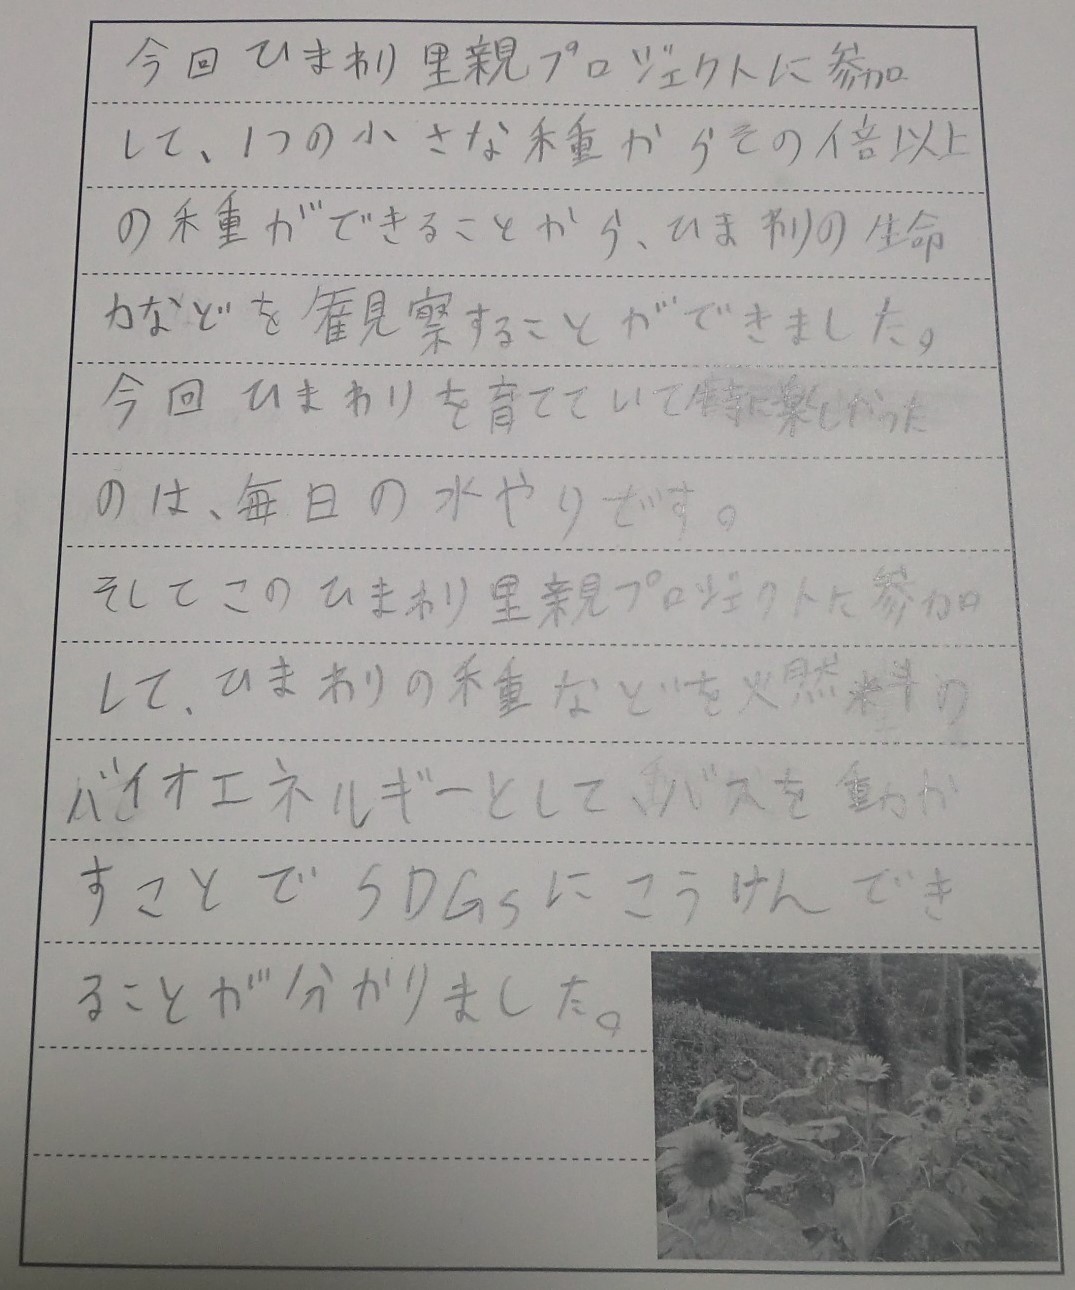 今回ひまわり里親プロジェクトに参加
して、1つの小さな種からその倍以上
の種ができることから、ひまわりの生命
力などを観察することができました。
今回ひまわりを育てていて特に楽しかった
のは、毎日の水やりです。
そしてこのひまわり里親プロジェクトに参加
して、ひまわりの種などを燃料の
バイオエネルギーとして、バスを動か
すことでSDGsにこうけんでき
ることが分かりました。